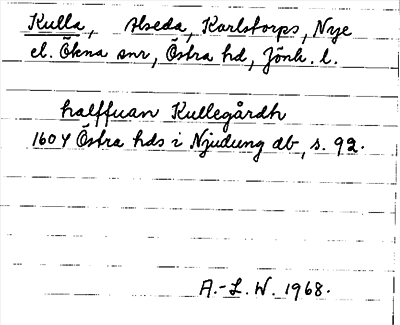 Kulla, Alseda, Karlstorps, Nye
el. Ökna snr, Östra hd, Jönk. l.
halffuan Kullegårdh
1604 Östra hds i Njudung db, s. 92.
A.-L. W. 1968.